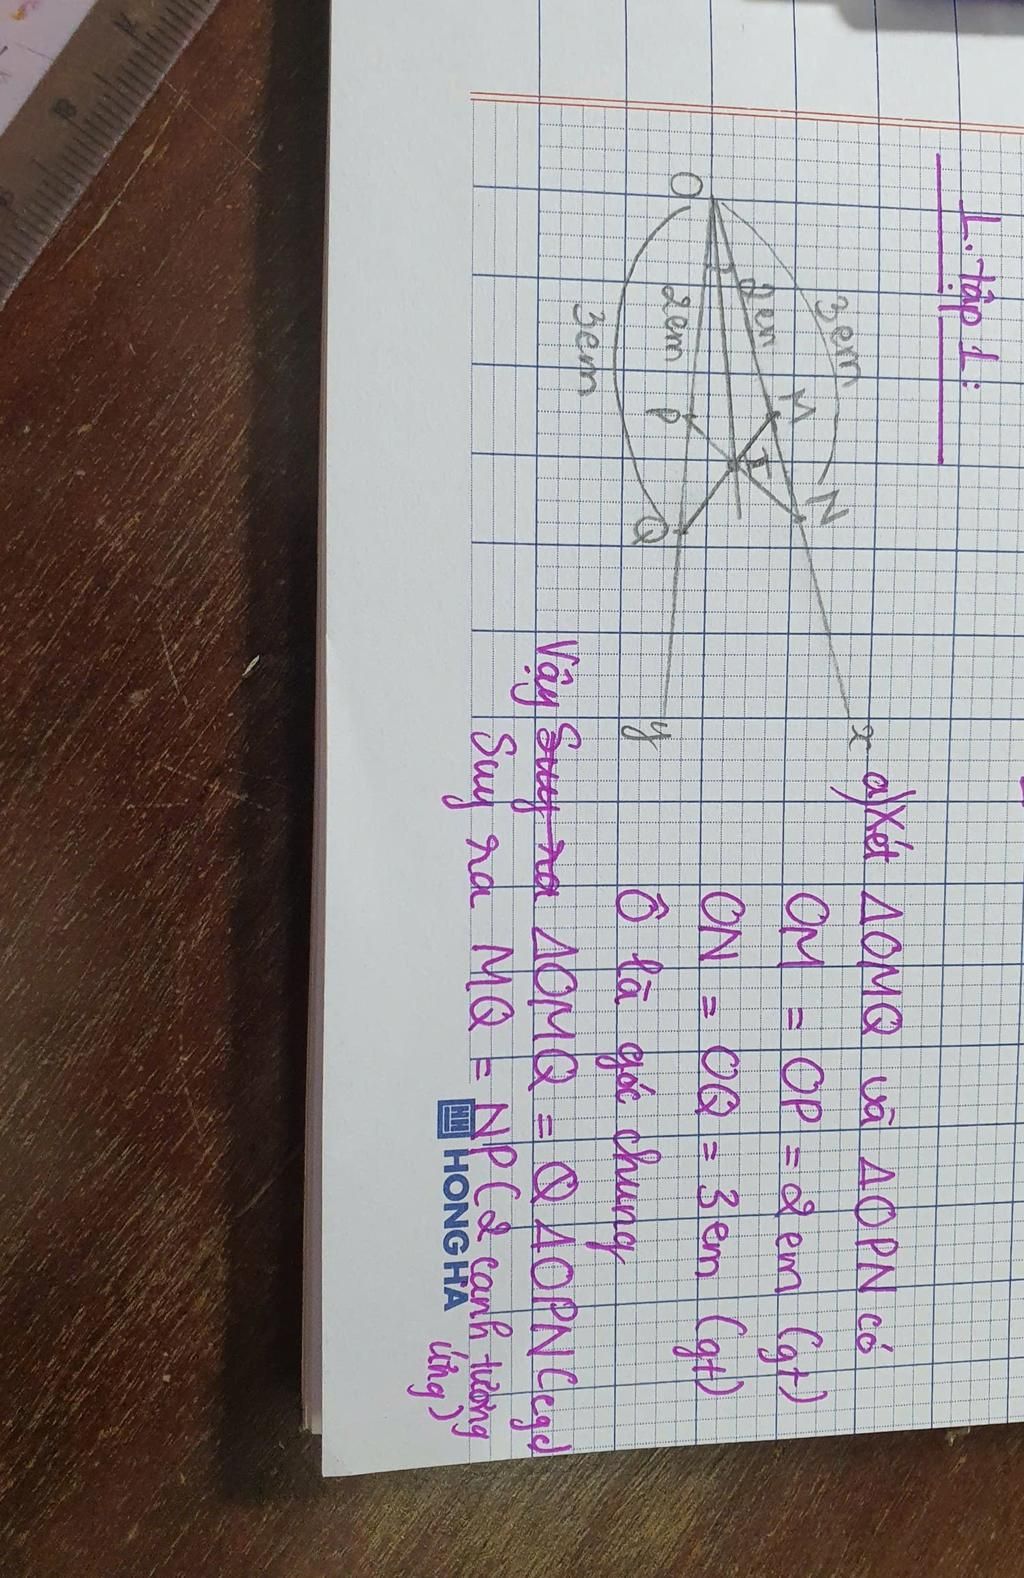 L. tập 1:
O
2cm
3cm
M
N
x
I
2cm
P
Q
3cm
y
a) Xét ΔOMQ và ΔOPN có
OM = OP = 2cm (gt)
ON = OQ = 3cm (gt)
Ô là góc chung
Vậy Suy ra ΔOMQ = Q ΔOPN (cgc)
Suy ra MQ = NP (2 cạnh tương ứng)
HONG HA